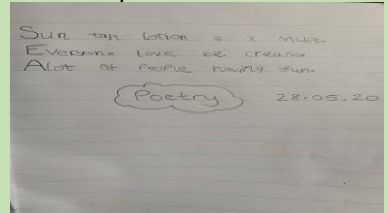 Sun tan lotion is a must.
Everyone loves ice cream.
Alot of people having fun.
Poetry 28.05.20